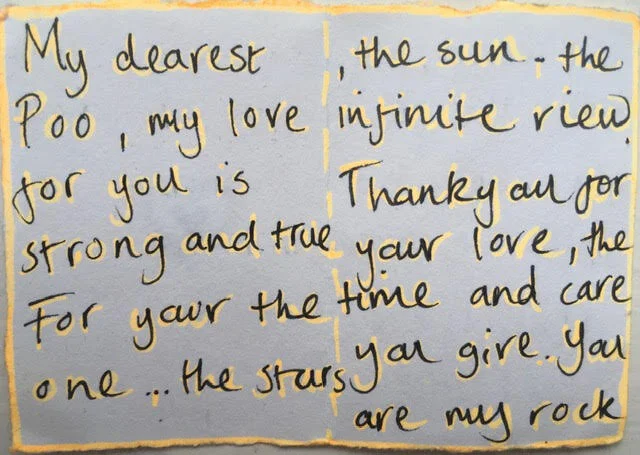 My dearest
Poo, my love
for you is
strong and true
For your the
one... the stars
, the sun - the
infinite view.
Thankyou for
your love, the
time and care
you give. You
are my rock